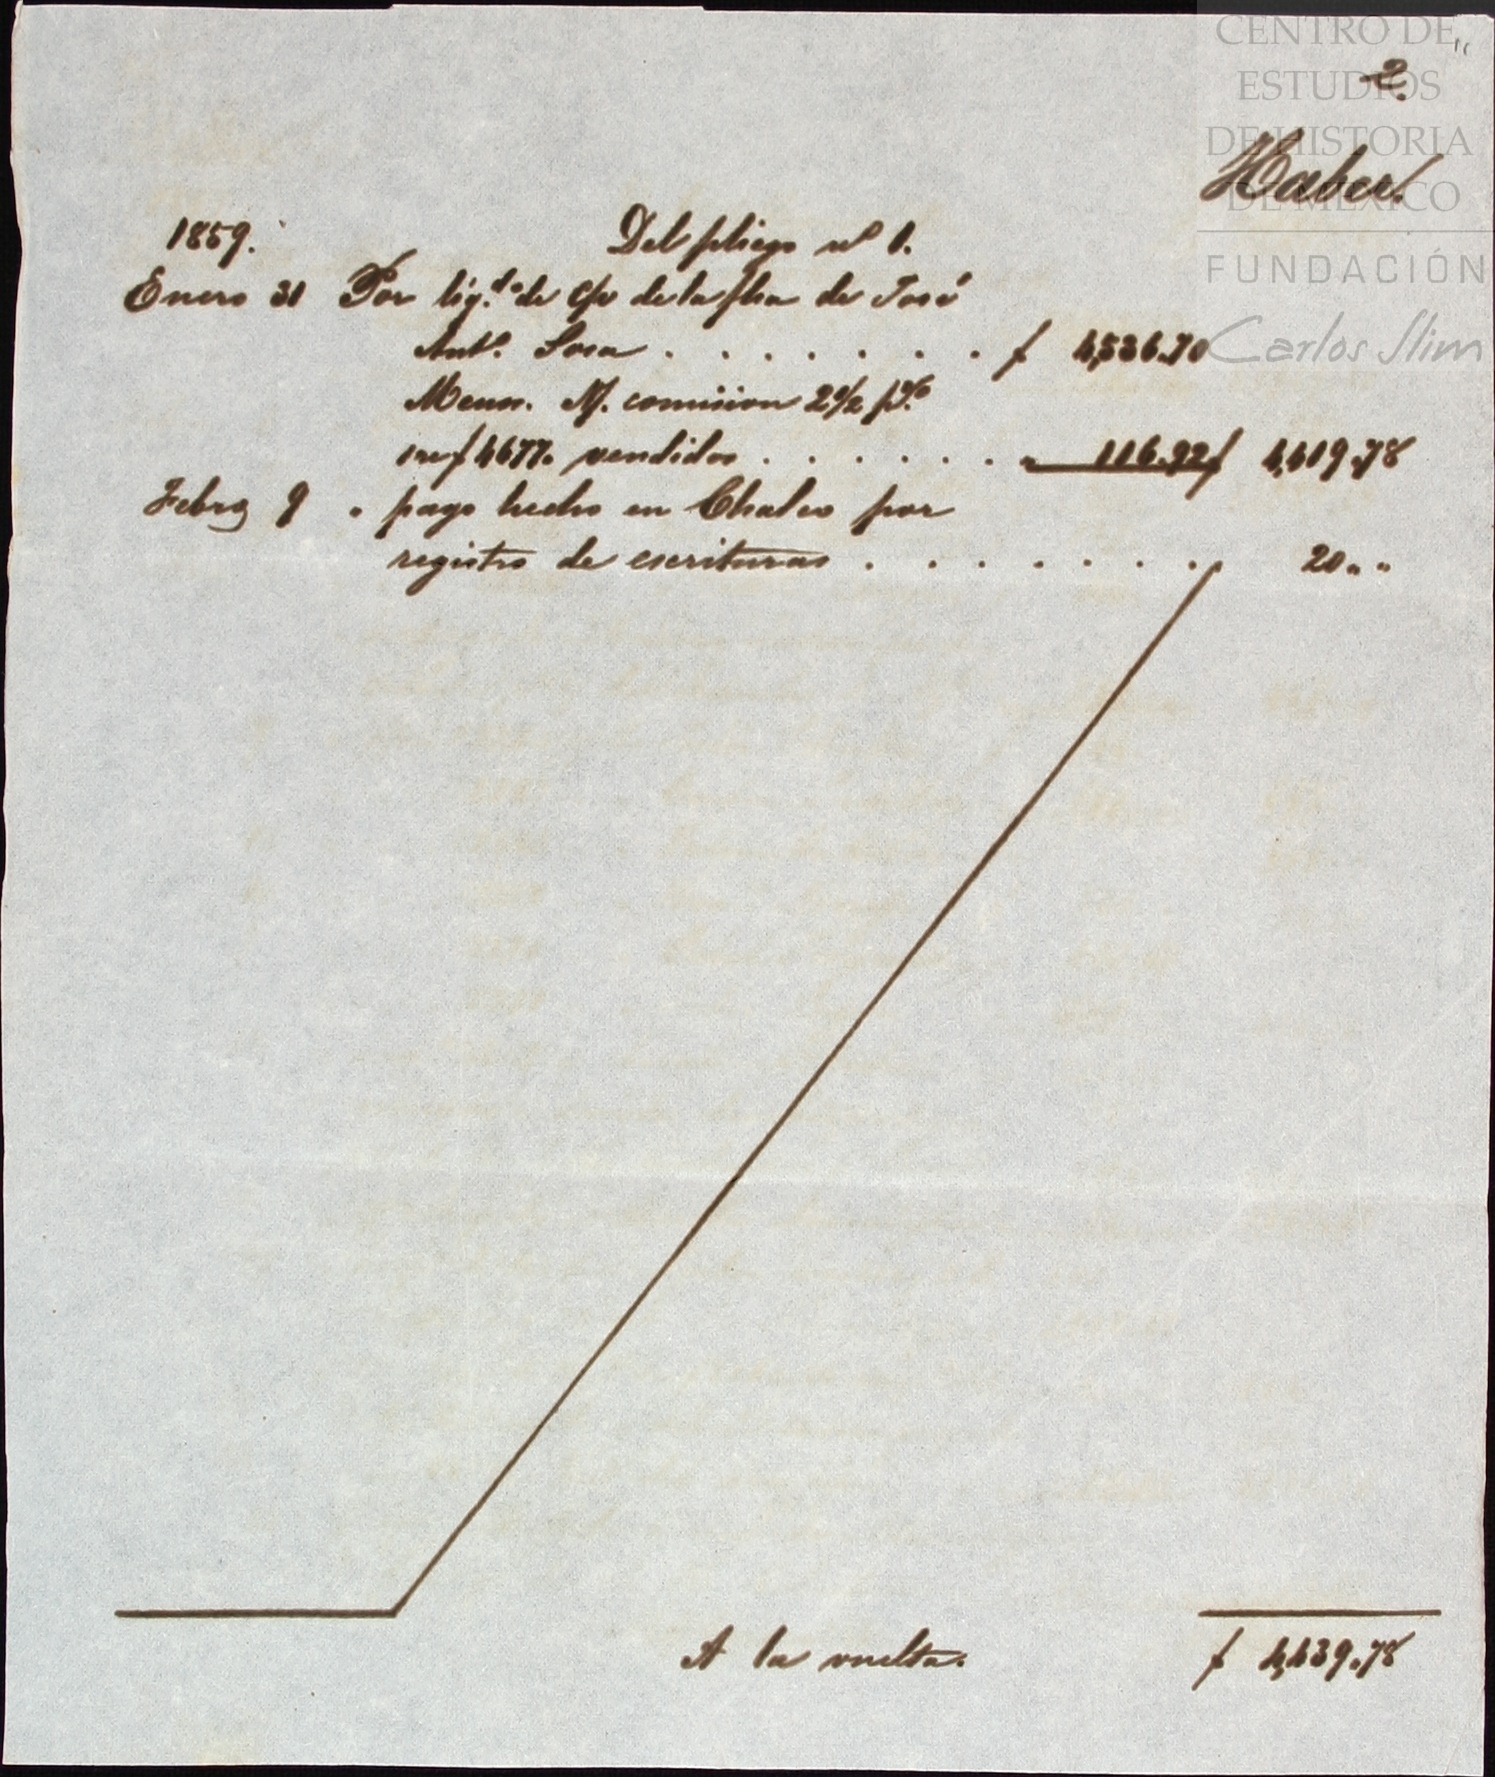 CENTRO DE
ESTUDIOS
DE HISTORIA
DE MEXICO
FUNDACIÓN
Carlos Slim
2.
Haber.
1859. Del pliego nº 1.
Enero 31 Por liq.do de c/v de la fha de José
Antº. Sosa . . . . . . . $ 4,536.70
Menos. N/. comision 2 1/2 p.%
sre $ 4677. vendidos . . . . . . " 116.92 $ 4,419.78
Febro 9 " pago hecho en Chalco por
registro de escrituras . . . . . . . " 20 " "
A la vuelta. $ 4,439.78